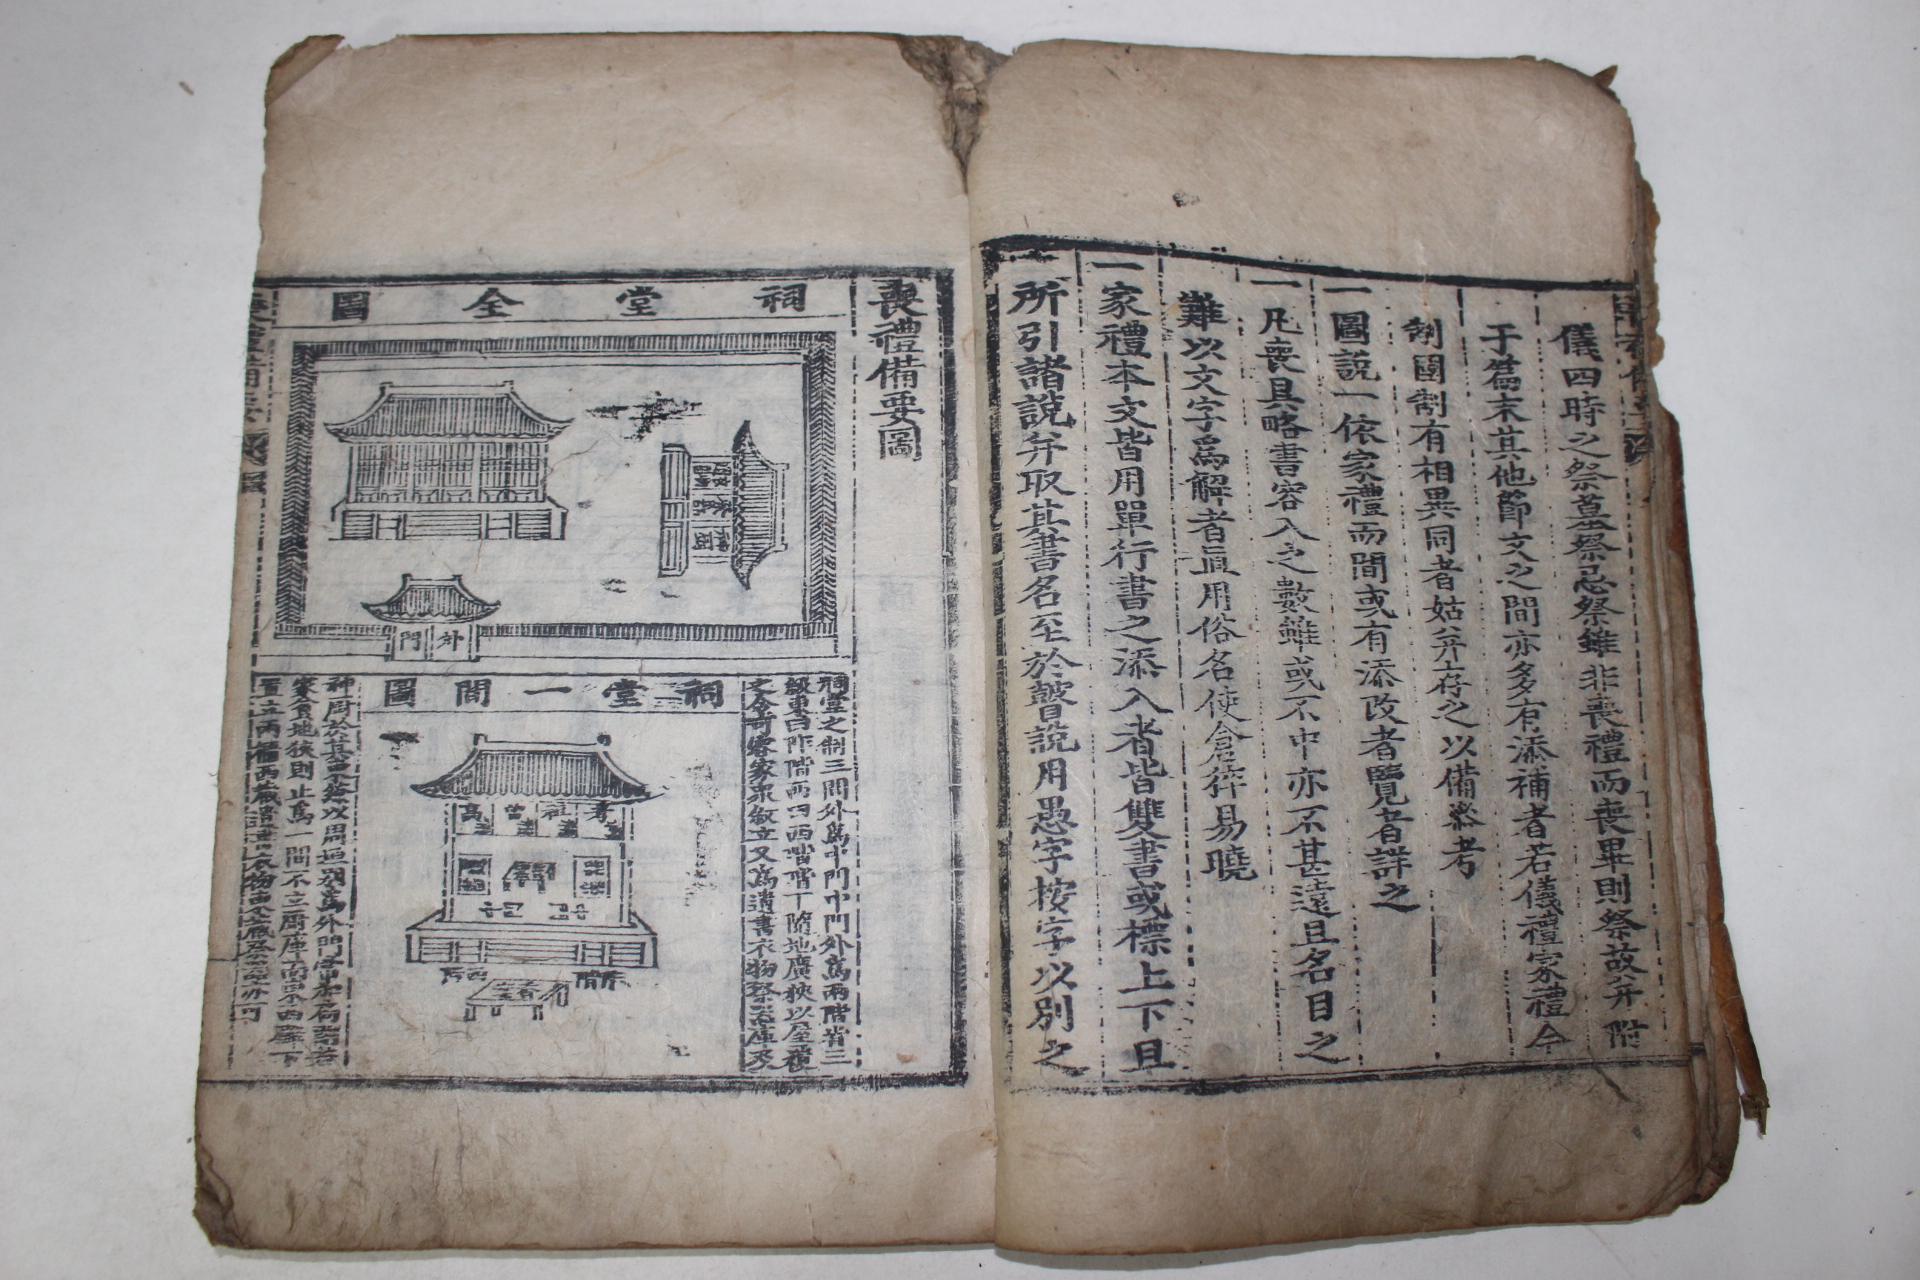 儀四時之祭墓祭忌祭雖非喪禮而喪畢則祭故幷附
于篇末其他節文之間亦多有添補者若儀禮家禮今
制國制有相異同者姑幷存之以備參考
一圖說一依家禮而間或有添改者覽者詳之
一凡喪具略書容入之數雖或不中亦不甚遠且名目之
難以文字爲解者直用俗名使倉卒易曉
一家禮本文皆用單行書之添入者皆雙書或標上下且
所引諸說幷取其書名至於瞽說用愚字按字以別之
喪禮備要圖
祠堂全圖
外門
祠堂之制三間外爲中門中門外爲兩階皆三
級東曰阼階西曰西階階下隨地廣狹以屋覆
之令可容家衆叙立又爲遺書衣物祭器庫及
祠堂一間圖
考 祖 曾 高
神厨於其東繚以周垣別爲外門常加扃閉若
家貧地狹則止爲一間不立厨庫而東西壁下
置立兩櫃西藏遺書衣物東藏祭器亦可